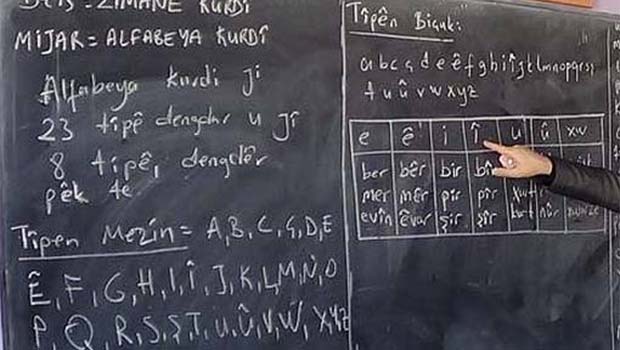 ZIMANÊ KURDÎ
MIJAR = ALFABEYA KURDÎ
Alfabeya kurdi ji
23 tîpê dengdar u Jî
8 tîpê, dengdêr
pêk te
Tîpên Mezin = A, B, C, Ç, D, E
Ê, F, G, H, I, Î, J, K, L, M, N, O
P, Q, R, S, Ş, T, U, Û, V, W, X, Y, Z
Tîpên Biçuk:
a b c ç d e ê f g h i î j k l m n o p q r s ş
t u û v w x y z
e ê i î u û xw
ber bêr bir
mer mêr pir pîr
evîn êvar şir şîr kurt nûr